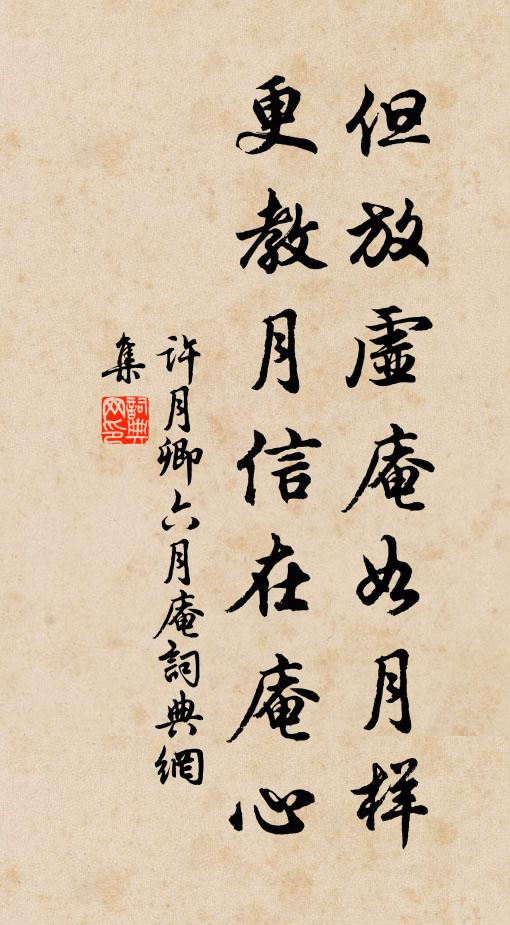 但放虛庵如月样
更教月信在庵心
許月卿六月庵詞典網
集
詞典網印